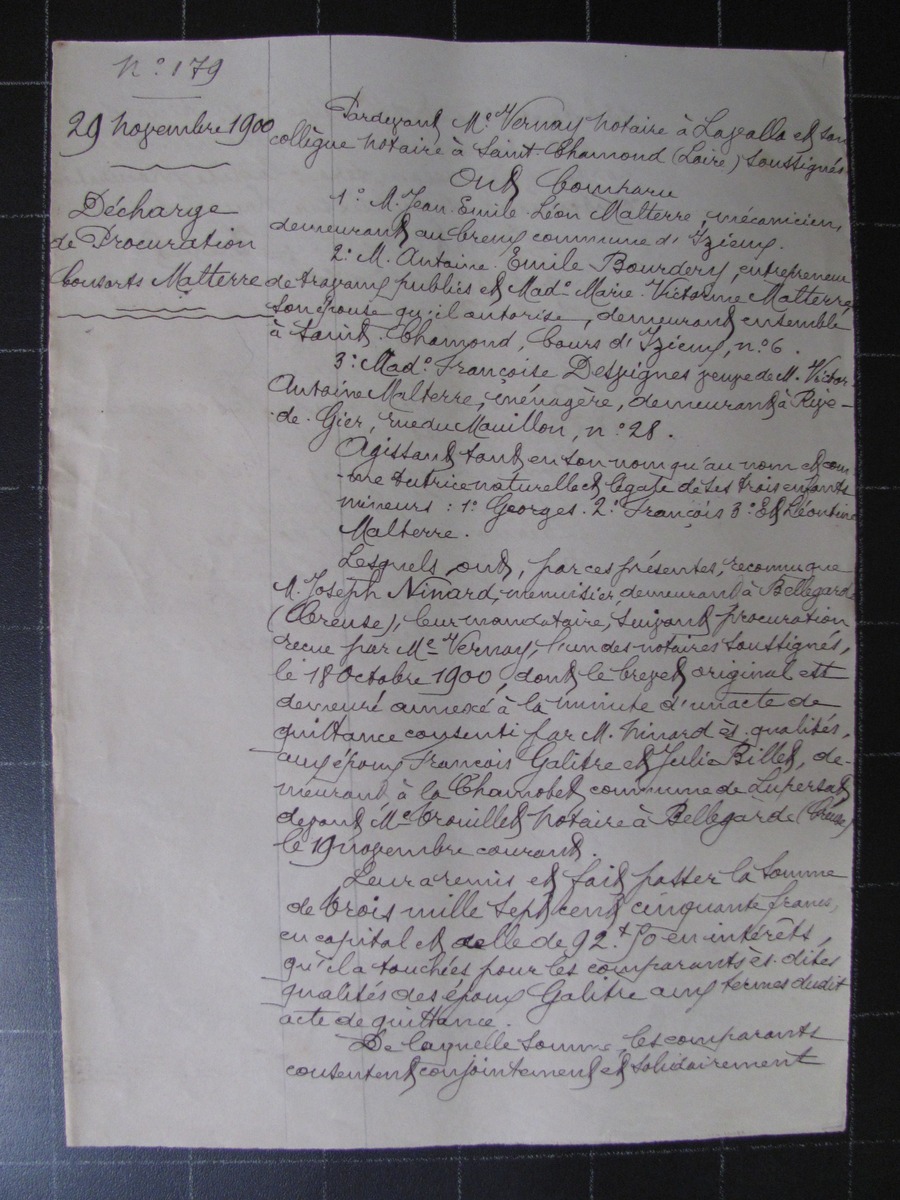 N° 179
29 novembre 1900
Décharge
de Procuration
Consorts Malterre
Pardevant Me Vernay notaire à Lavalla et son
collègue notaire à Saint-Chamond (Loire) soussignés
Ont Comparu
1° M. Jean Emile Léon Malterre, mécanicien,
demeurant au Creux commune d'Izieux.
2° M. Antoine Emile Bourdery, entrepreneur
de travaux publics et Made Marie Victorine Malterre,
son épouse qu'il autorise, demeurant ensemble
à Saint-Chamond, Cours d'Izieux, n° 6.
3° Made Françoise Desvignes veuve de M. Victor
Antoine Malterre, ménagère, demeurant à Rive-
de-Gier, rue du Mouillon, n° 28.
Agissant tant en son nom qu'au nom et com
me tutrice naturelle et légale de ses trois enfants
mineurs : 1° Georges. 2° François 3° Et Léontine
Malterre.
Lesquels ont, par ces présentes, reconnu que
M. Joseph Ninard, menuisier, demeurant à Bellegarde
(Creuse), leur mandataire, suivant procuration
reçue par Me Vernay, l'un des notaires soussignés,
le 18 Octobre 1900, dont le brevet original est
demeuré annexé à la minute d'un acte de
quittance consenti par M. Ninard ès-qualités,
aux époux François Galitre et Julie Billet, de-
meurant à la Chamobet commune de Lupersat,
devant Me Trouillet notaire à Bellegarde (Creuse)
le 19 novembre courant.
Leur a remis et fait passer la somme
de trois mille sept cent cinquante francs,
en capital et celle de 92 f 50 en intérêts,
qu'il a touchées pour les comparants ès-dites
qualités des époux Galitre aux termes dudit
acte de quittance.
De laquelle somme, les comparants
consentent conjointement et solidairement